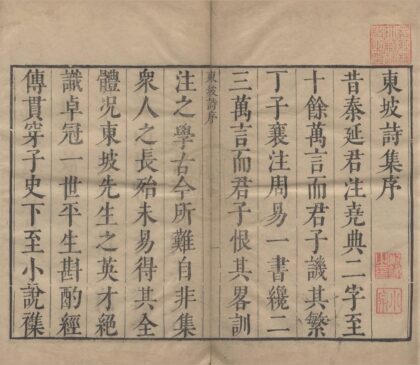 東坡詩集序
昔秦延君注堯典二字至
十餘萬言而君子譏其繁
丁子襄注周易一書纔二
三萬言而君子恨其畧訓
東坡詩序
注之學古今所難自非集
衆人之長殆未易得其全
體况東坡先生之英才絕
識卓冠一世平生斟酌經
傳貫穿子史下至小說襍